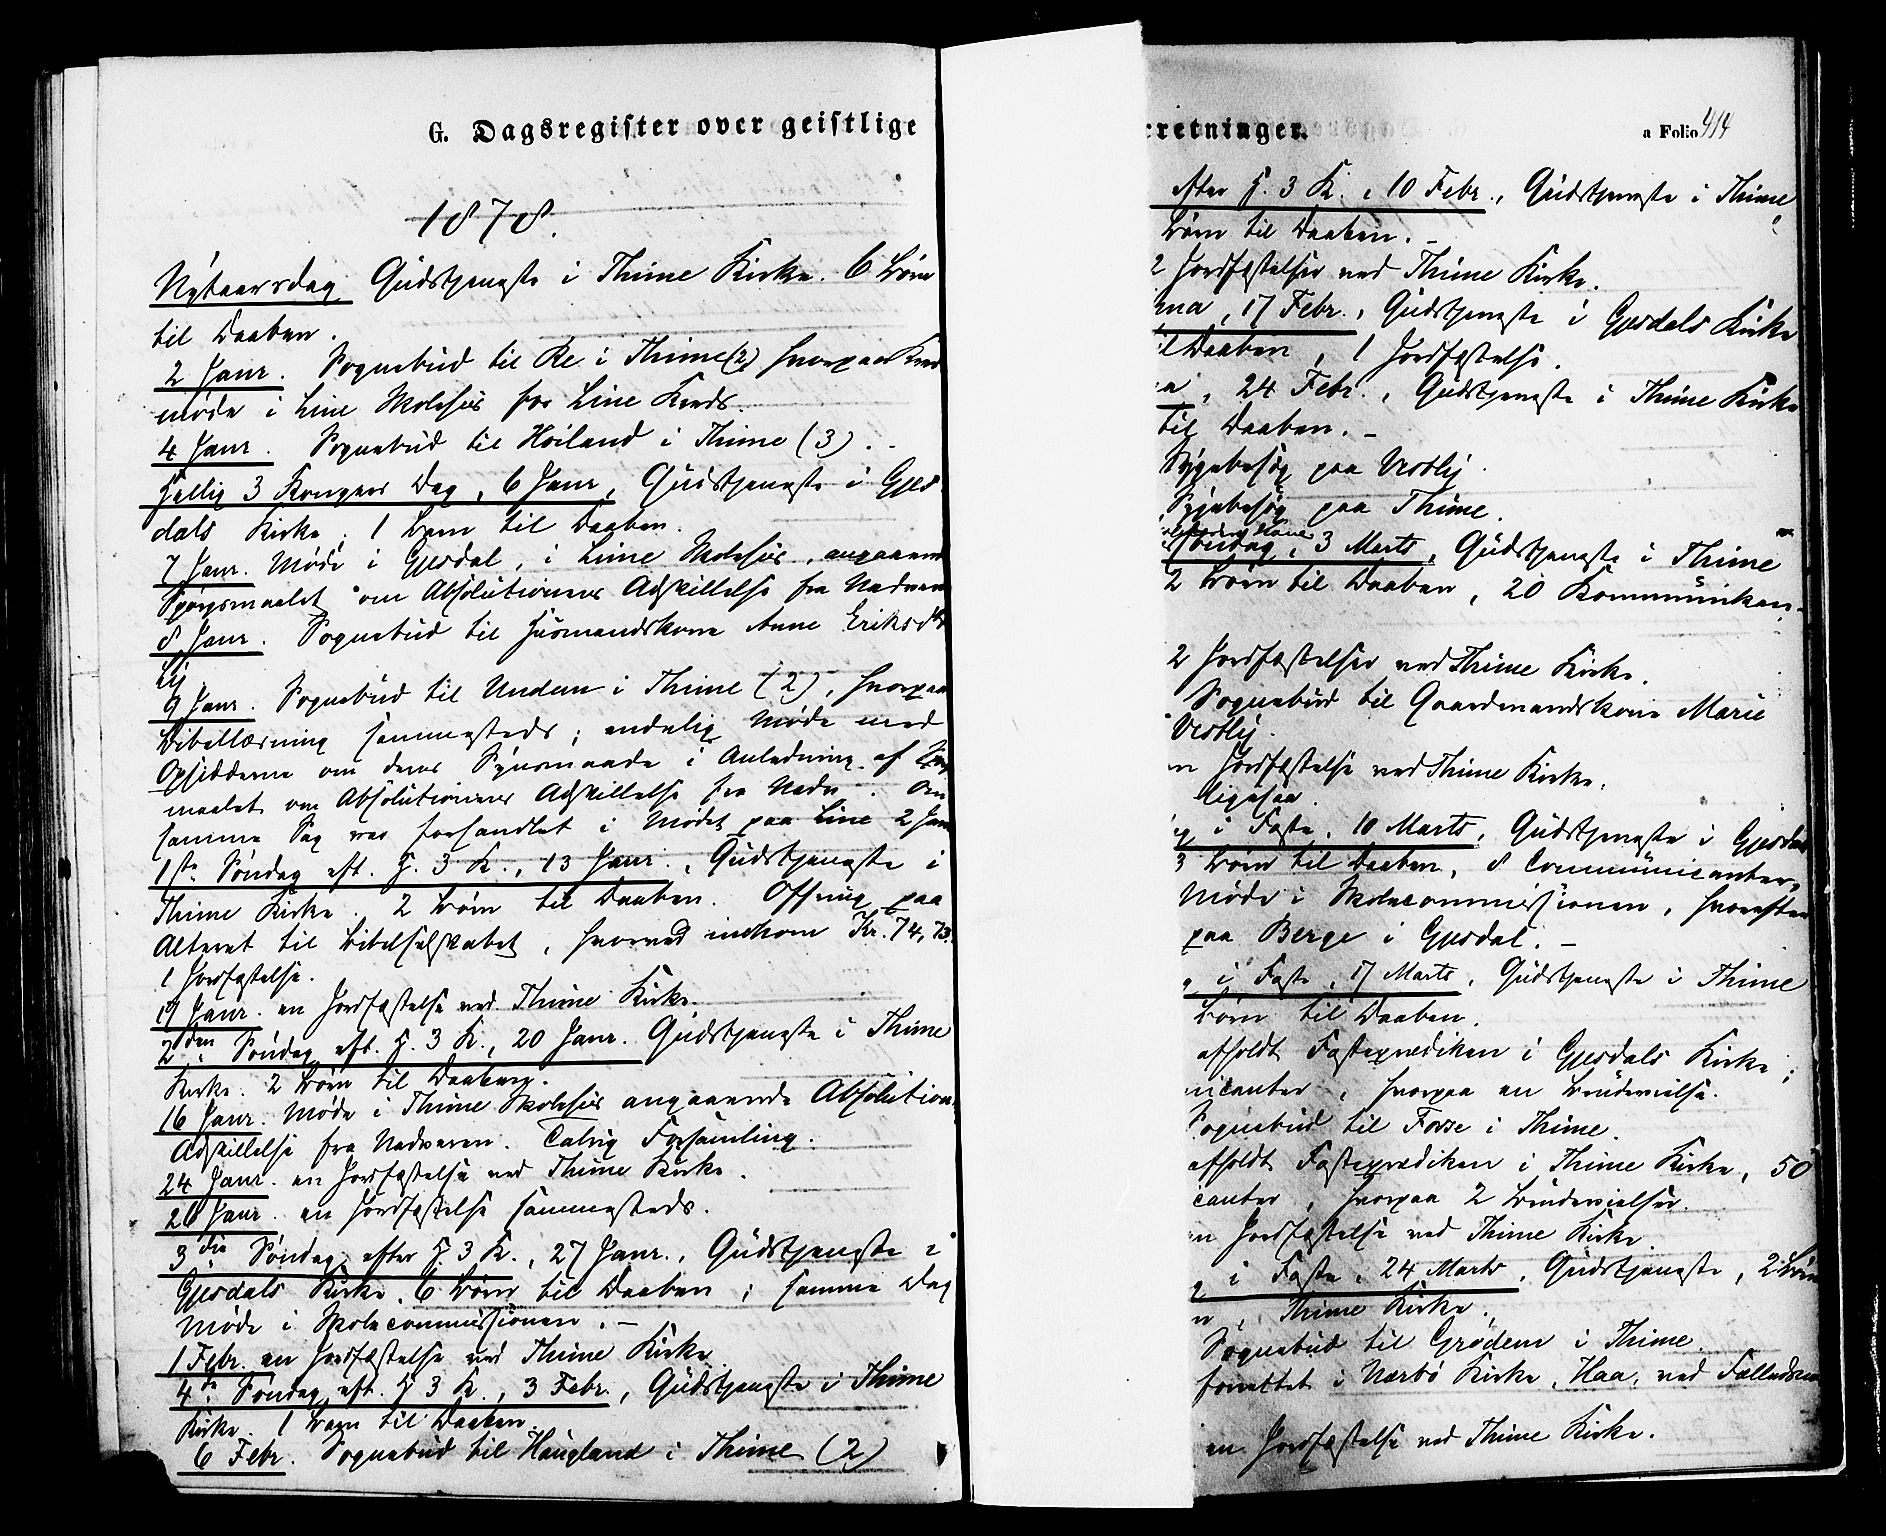 G. Dagsregister over geistlige
1878.
Nytaarsdag Gudstjeneste i Thime Kirke. 6 Børn
til Daaben.
2 Janr. Sognebud til Re i Thime (2) hvorpaa
møde i Line Skolehus for Line Kreds.
4 Janr. Sognebud til Høiland i Thime (3).
Hellig 3 Kongers Dag, 6 Janr, Gudstjeneste i Gjes-
dals Kirke; 1 Barn til Daaben.
7 Janr. Møde i Gjesdal, i Limes Skolehus, angaaende
Spørgsmaalet om Absolutionens Adskillelse fra Nadveren
8 Janr. Sognebud til Husmandskone Anne Eriksdtr
Lij
9 Janr. Sognebud til Undem i Thime (2), hvorpaa
Bibellæsning sammesteds; endelig Møde med
Opsidderne om deres Synsmaade i Anledning af Spørgs
maalet om Absolutionens Adskillelse fra Nadv. Om
samme Sag var forhandlet i Mødet paa Line 2 Jan
1ste Søndag eft. H. 3 K., 13 Janr., Gudstjeneste i
Thime Kirke. 2 Børn til Daaben. Offring paa
Alteret til Bibelselskabet, hvorved indkom Kr. 74,73.
1 Jordfæstelse.
19 Janr. en Jordfæstelse ved Thime Kirke.
2den Søndag eft. H. 3 K., 20 Janr. Gudstjeneste i Thime
Kirke. 2 Børn til Daaben.
16 Janr. Møde i Thime Skolehus angaaende Absolution.
Adskillelse fra Nadveren. Talrig Forsamling.
24 Janr. en Jordfæstelse ved Thime Kirke.
26 Janr. en Jordfæstelse sammesteds.
3die Søndag efter H. 3 K., 27 Janr., Gudstjeneste i
Gjesdals Kirke. 6 Børn til Daaben; samme Dag
Møde i Skolecommissionen. –
1 Febr. en Jordfæstelse ved Thime Kirke.
4de Søndag eft. H 3 K., 3 Febr., Gudstjeneste i Thime
Kirke. 1 Barn til Daaben.
6 Febr. Sognebud til Haugland i Thime (2)
rretninger.
a Folio 414
efter H. 3 K., 10 Febr., Gudstjeneste i Thime
Børn til Daaben. –
2 Jordfæstelser ved Thime Kirke.
ma, 17 Febr., Gudstjeneste i Gjesdals Kirke
til Daaben, 1 Jordfæstelse.
a, 24 Febr., Gudstjeneste i Thime Kirke
til Daaben. –
Sygebesøg paa Vestly.
Sygebesøg paa Thime.
Søndag, 3 Marts, Gudstjeneste i Thime
2 Børn til Daaben, 20 Kommunikan-
2 Jordfæstelser ved Thime Kirke.
Sognebud til Gaardmandskone Marie
Vestly.
en Jordfæstelse ved Thime Kirke.
ligesaa.
i Faste, 10 Marts, Gudstjeneste i Gjesdal
3 Børn til Daaben, 8 Communicanter,
Møde i Skolecommissionen, hvorefter
paa Berge i Gjesdal. –
i Faste, 17 Marts, Gudstjeneste i Thime
Børn til Daaben.
afholdt Fasteprædiken i Gjesdals Kirke;
nicanter, hvorpaa en Brudevielse.
Sognebud til Fosse i Thime.
afholdt Fasteprædiken i Thime Kirke, 50
canter, hvorpaa 2 Brudevielser.
en Jordfæstelse ved Thime Kirke
i Faste, 24 Marts, Gudstjeneste, 2 Børn
n, Thime Kirke.
Sognebud til Grødem i Thime.
forrettet i Nærbø Kirke, Haa, ved
en Jordfæstelse ved Thime Kirke.